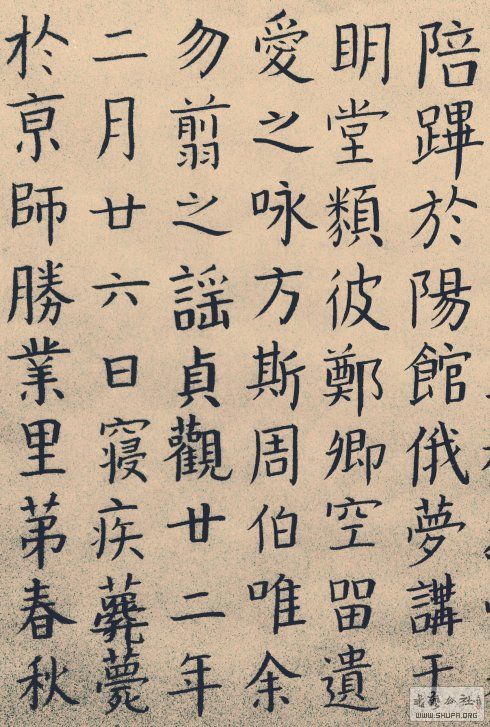 陪蹕於陽館俄夢講于
明堂類彼鄭卿空留遺
愛之咏方斯周伯唯余
勿翦之謡貞觀廿二年
二月廿六日寢疾薨
於京師勝業里第春秋
WWW.SHUFA.ORG